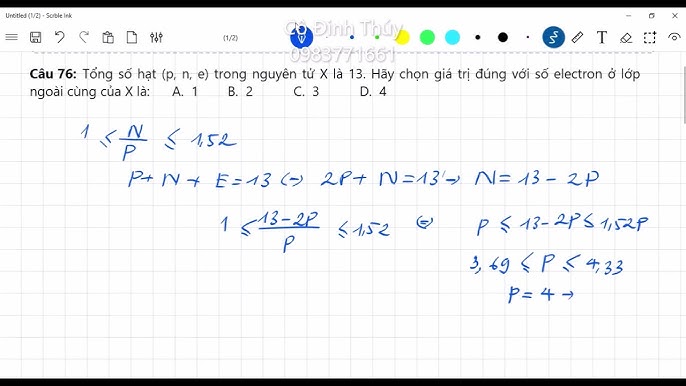 Untitled (1/2) - Scrble Ink
Cô Đinh Thúy
0983771661
(1/2)
Câu 76: Tổng số hạt (p, n, e) trong nguyên tử X là 13. Hãy chọn giá trị đúng với số electron ở lớp
ngoài cùng của X là: A. 1 B. 2 C. 3 D. 4
1 ≤ N/P ≤ 1,52
P + N + E = 13 (=) 2P + N = 13 → N = 13 - 2P
1 ≤ (13-2P)/P ≤ 1,52 (=) P ≤ 13-2P ≤ 1,52P
3,69 ≤ P ≤ 4,33
P = 4 →